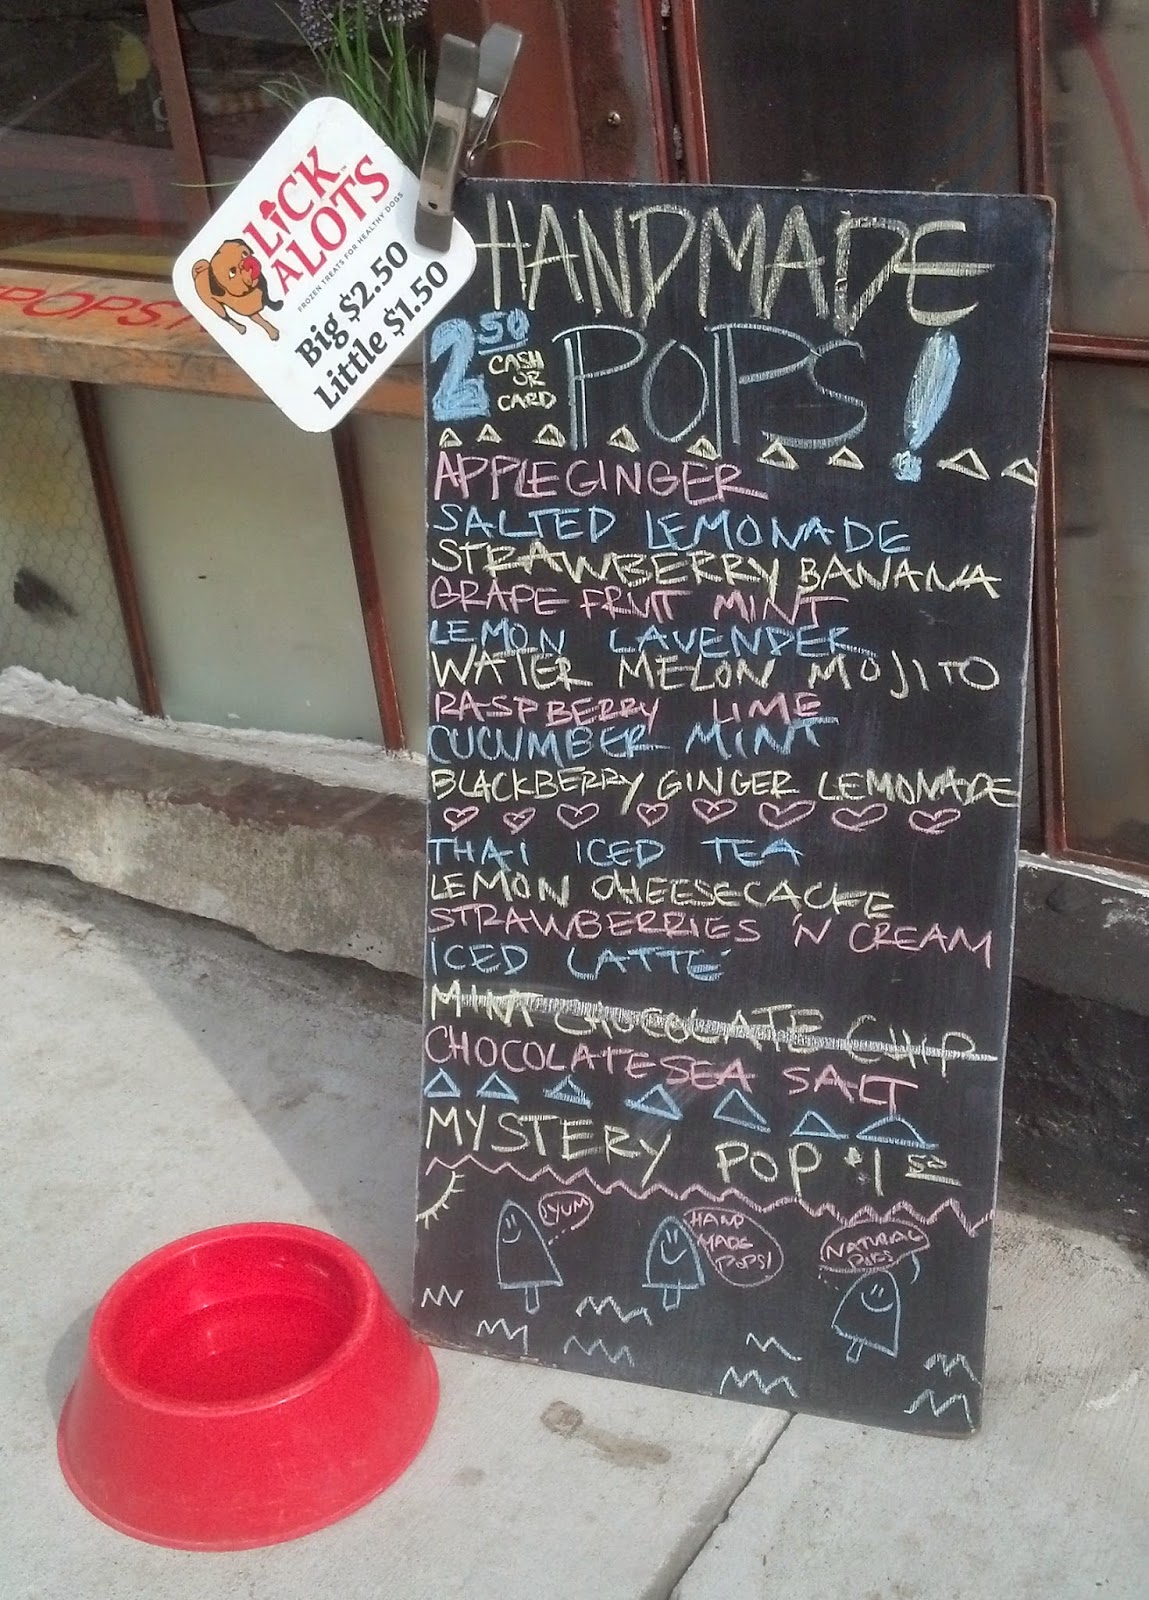 LiCK
ALOTS™
FROZEN TREATS FOR HEALTHY DOGS
Big $2.50
Little $1.50
POPS
HANDMADE
2.50 POPS!
CASH
OR
CARD
APPLE GINGER
SALTED LEMONADE
STRAWBERRY BANANA
GRAPE FRUIT MINT
LEMON LAVENDER
WATER MELON MOJITO
RASPBERRY LIME
CUCUMBER MINT
BLACKBERRY GINGER LEMONADE
THAI ICED TEA
LEMON CHEESECACKE
STRAWBERRIES 'N CREAM
ICED LATTE
MINT CHOCOLATE CHIP
CHOCOLATE SEA SALT
MYSTERY POP $1 50
YUM
HAND
MADE
POPS!
NATURAL
POPS